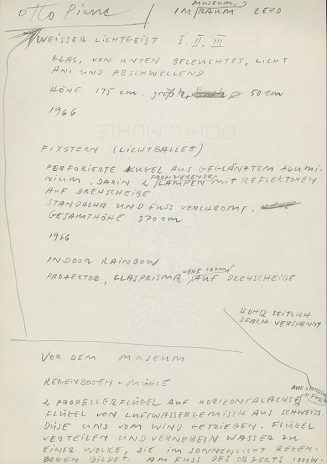 Otto Piene / IM MUSEUM, RAUM ZERO
WEISSER LICHTGEIST I, II, III
GLAS, VON UNTEN BELEUCHTET, LICHT
AN- UND ABSCHWELLEND
HÖHE 175 cm, größter ø 50 cm
1966
FIXSTERN (LICHTBALLET)
PERFORIERTE KUGEL AUS GEGLÄNZTEM ALUMI-
NIUM, DARIN 2 ROTIERENDE LAMPEN MIT REFLEKTOREN
AUF DREHSCHEIBE
STANDROHR UND FUSS VERCHROMT,
GESAMTHÖHE 370 cm
1966
INDOOR RAINBOW
PROJEKTOR, GLASPRISMA, AUF DREHSCHEIBE
ROHR SEITLICH
3FACH VERSPANNT
VOR DEM MUSEUM
REGENBOGEN-MÜHLE
2 PROPELLERFLÜGEL AUF HORIZONTALACHSE
FLÜGEL VON LUFTWASSERGEMISCH AUS SCHWEISS-
DÜSE UND VOM WIND GETRIEBEN. FLÜGEL
VERTEILEN UND VERNEBELN WASSER ZU
EINER WOLKE, DIE IM SONNENLICHT REGEN-
BOGEN BILDET. AM FUSS DES OBJEKTS